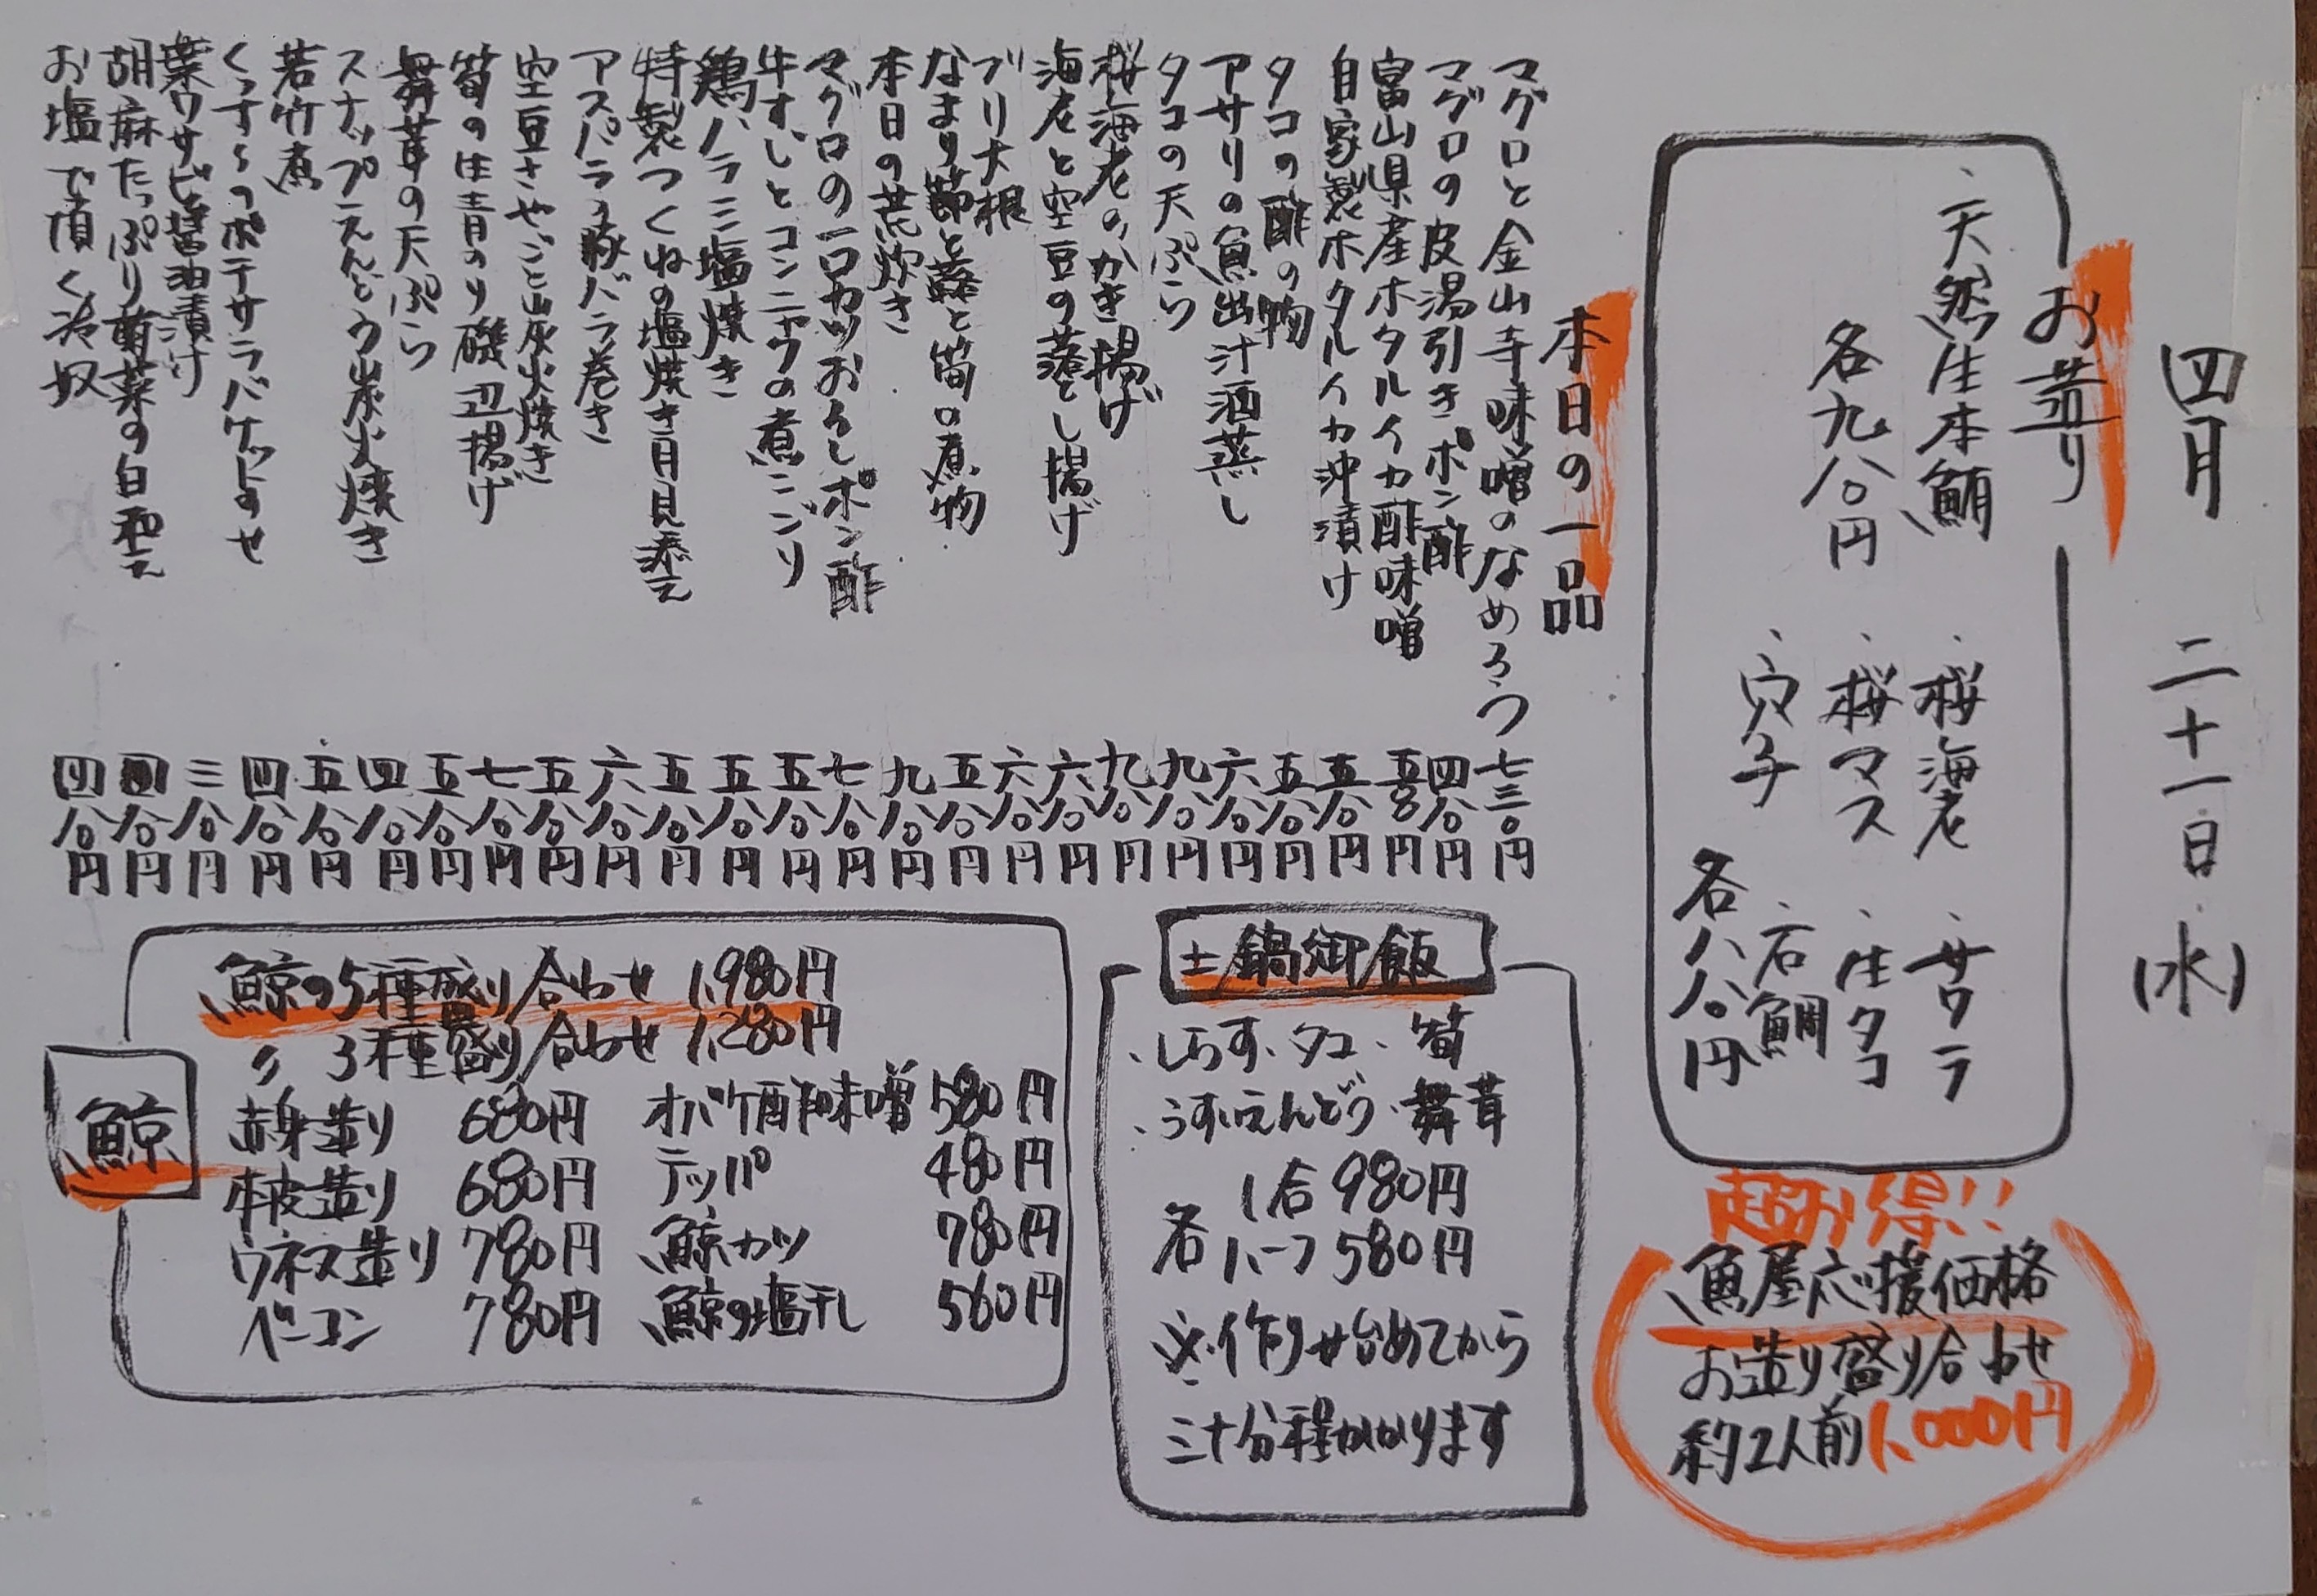 四月 二十一日 (水)
お造り
・天然生本鮪
各九八〇円
・桜海老 ・サワラ
・桜マス ・生タコ
・穴子 ・石鯛
各八八〇円
超お得!!
魚屋応援価格
お造り盛り合わせ
約2人前1,000円
本日の一品
マグロと金山寺味噌のなめろう 七三〇円
マグロの皮湯引きポン酢 四八〇円
富山県産ホタルイカ酢味噌 五八〇円
自家製ホタルイカ沖漬け 五八〇円
タコの酢の物 五八〇円
アサリの魚出汁酒蒸し 六八〇円
タコの天ぷら 九八〇円
桜海老のかき揚げ 九八〇円
海老と空豆の落とし揚げ 六八〇円
ブリ大根 六八〇円
なまり節と蕗と筍の煮物 五八〇円
本日の荒炊き 九八〇円
マグロの一口カツおろしポン酢 七八〇円
牛すじとコンニャクの煮こごり 五八〇円
鶏ハラミ塩焼き 五八〇円
特製つくねの塩焼き月見添え 五八〇円
アスパラ豚バラ巻き 六八〇円
空豆さやごと炭火焼き 五八〇円
筍の生青のり磯辺揚げ 七八〇円
舞茸の天ぷら 五八〇円
スナップえんどう炭火焼き 四八〇円
若竹煮 五八〇円
くんすものポテサラバケットのせ 四八〇円
葉ワサビ醤油漬け 三八〇円
胡麻たっぷり菊菜の白和え 四八〇円
お塩で頂く冷奴 四八〇円
土鍋御飯
・しらす・タコ・筍
・うすいえんどう・舞茸
各 1合 980円
ハーフ 580円
※作り始めてから
三十分程かかります
鯨
鯨の5種盛り合わせ 1,980円
〃 3種盛り合わせ 1,280円
赤身造り 680円 オバケ酢味噌 580円
本皮造り 680円 テッパ 480円
ウネス造り 780円 鯨カツ 780円
ベーコン 780円 鯨の塩干し 560円